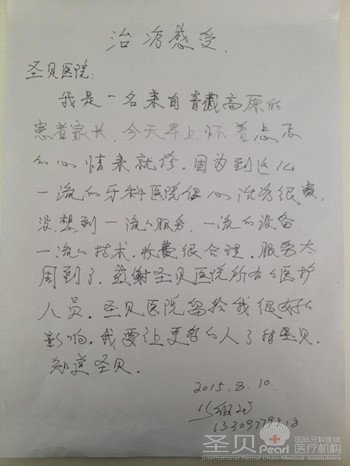 治疗感受.
圣贝医院:
我是一名来自青藏高原的
患者家长,今天早上怀着忐忑
的心情来就诊,因为到这么
一流的牙科医院担心治疗很贵,
没想到一流的服务,一流的设备
一流的技术,收费很合理,服务太
周到了,感谢圣贝医院所有的医护
人员,圣贝医院留给我很好的
影响,我要让更多的人了解圣贝
知道圣贝.
2015.8.10.
圣贝 Pearl 国际牙科连锁 医疗机构
International Dental Chain Medical Institutions